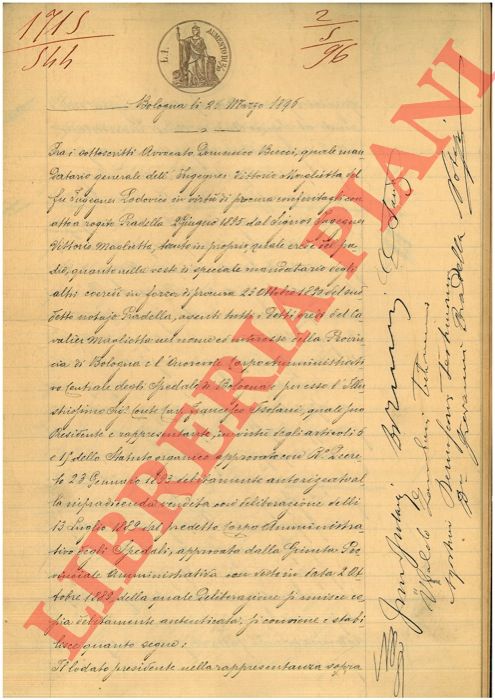 1715
544
2
5
96
L.1.
AUMENTO DI 2/10
Bologna li 26 Marzo 1896
Fra i sottoscritti Avvocato Domenico Bucci, quale man
datario generale dell' Ingegner Vittorio Maglietta del
fu Ingegner Lodovico in virtù di procura conferitagli con
atto a rogito Pradella 2 Giugno 1885 dal Signor Ingegner
Vittorio Maglietta, tanto in proprio quale erede del pa
dre, quanto nella veste di speciale mandatario degli
altri coeredi in forza di procura 23 Ottobre 1880 del sud
detto notajo Pradella, assenti tutti i detti eredi del Ca
valier Maglietta nel nome ed interesse della Provin
cia di Bologna e l' Onorevole Corpo Amministrati
vo Centrale degli Spedali di Bologna e per esso l' Illu
strissimo Sig. Conte Cav. Francesco Isolani, quale suo
Presidente e rappresentante, in virtù degli articoli 6
e 19 dello Statuto organico approvato con R.º Decre
to 23 Gennaro 1873 debitamente autorizzato al
la infradicenda vendita con deliberazione delli
13 Luglio 1889 del predetto Corpo Amministra
tivo degli Spedali, approvata dalla Giunta Pro
vinciale Amministrativa con voto in data 2 Ot
tobre 1889, della quale Deliberazione si unisce co
pia debitamente autenticata, si conviene e stabi
lisce quanto segue:
Il lodato presidente nella rappresentanza sopra
Ubaldo
testimonio
Dr Giovanni Pradella Notajo
LIBRERIA PIANI